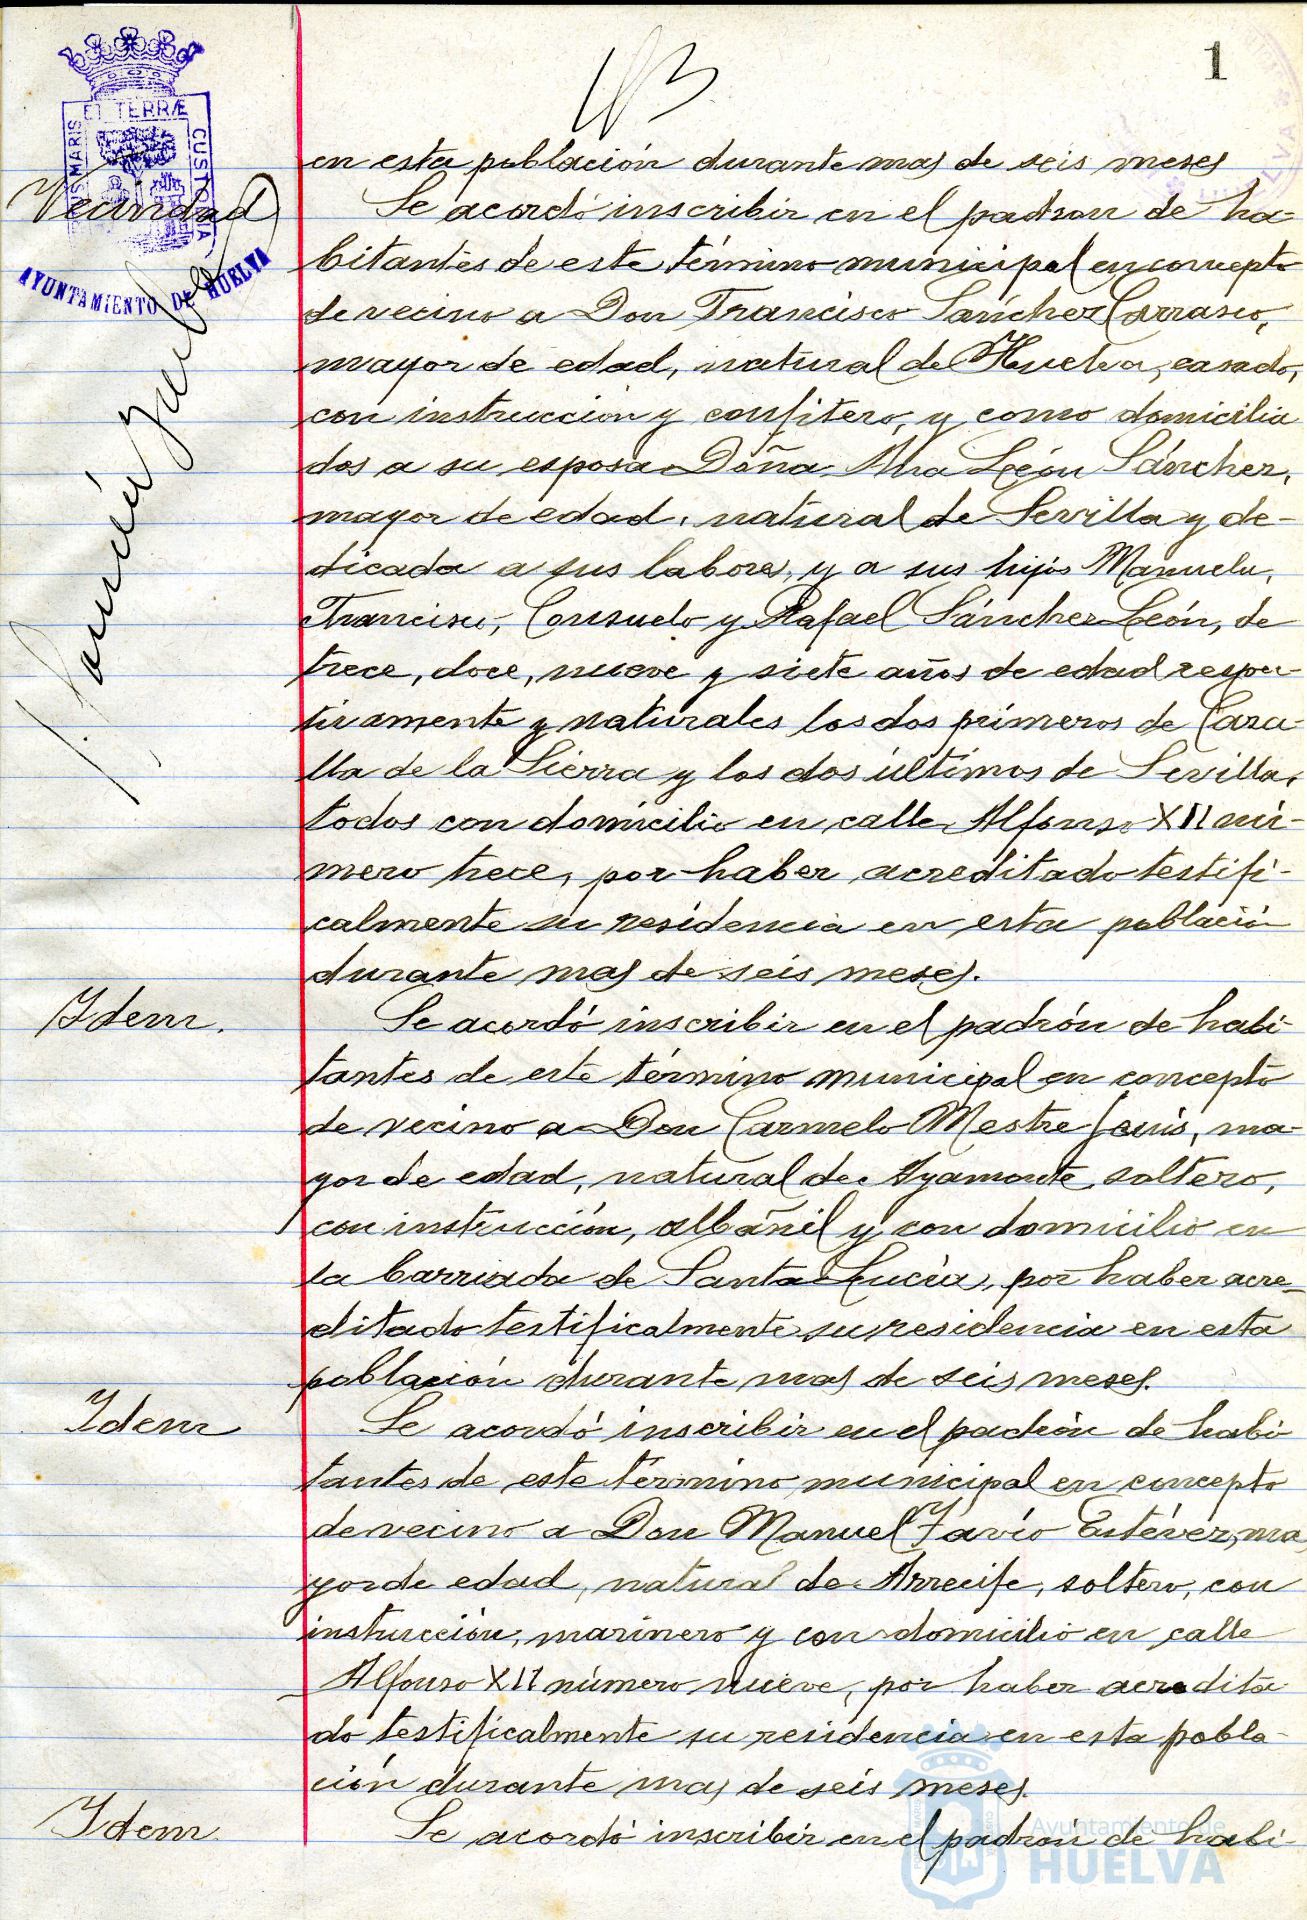 1
en esta población durante mas de seis meses
Vecindad
Se acordó inscribir en el padron de ha-
bitantes de este término municipal en concepto
de vecino a Don Francisco Sánchez Carrasco,
mayor de edad, natural de Huelva, casado,
con instruccion y confitero, y como domicilia
dos a su esposa Doña Ana León Sánchez,
mayor de edad, natural de Sevilla y de-
dicada a sus labores, y a sus hijos Manuela,
Francisco, Consuelo y Rafael Sánchez León, de
trece, doce, nueve y siete años de edad respec-
tivamente y naturales los dos primeros de Caza-
lla de la Sierra y los dos últimos de Sevilla,
todos con domicilio en calle Alfonso XII nú-
mero trece, por haber acreditado testifi-
calmente su residencia en esta población
durante mas de seis meses.
Idem.
Se acordó inscribir en el padrón de habi-
tantes de este término municipal en concepto
de vecino a Don Carmelo Mestre, ma-
yor de edad, natural de Ayamonte, soltero,
con instrucción, albañil y con domicilio en
la barriada de Santa Lucía, por haber acre-
ditado testificalmente su residencia en esta
población durante mas de seis meses.
Idem
Se acordó inscribir en el padrón de habi
tantes de este término municipal en concepto
de vecino a Don Manuel Estévez, ma
yor de edad, natural de Arrecife, soltero, con
instrucción, marinero y con domicilio en calle
Alfonso XII número nueve, por haber acredita
do testificalmente su residencia en esta pobla-
ción durante mas de seis meses.
Idem
Se acordó inscribir en el padrón de habi-
ET TERRÆ
MARIS
CUSTODIA
AYUNTAMIENTO DE HUELVA
Ayuntamiento de
HUELVA